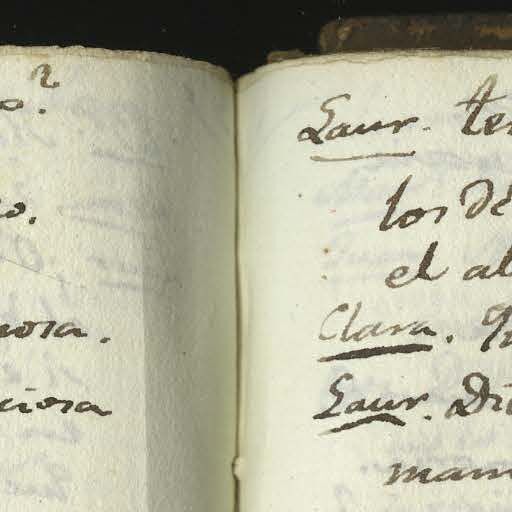 o?
o.
nosa.
ciosa
Laur. te
los de
el al
Clara. q
Laur. Di
mam